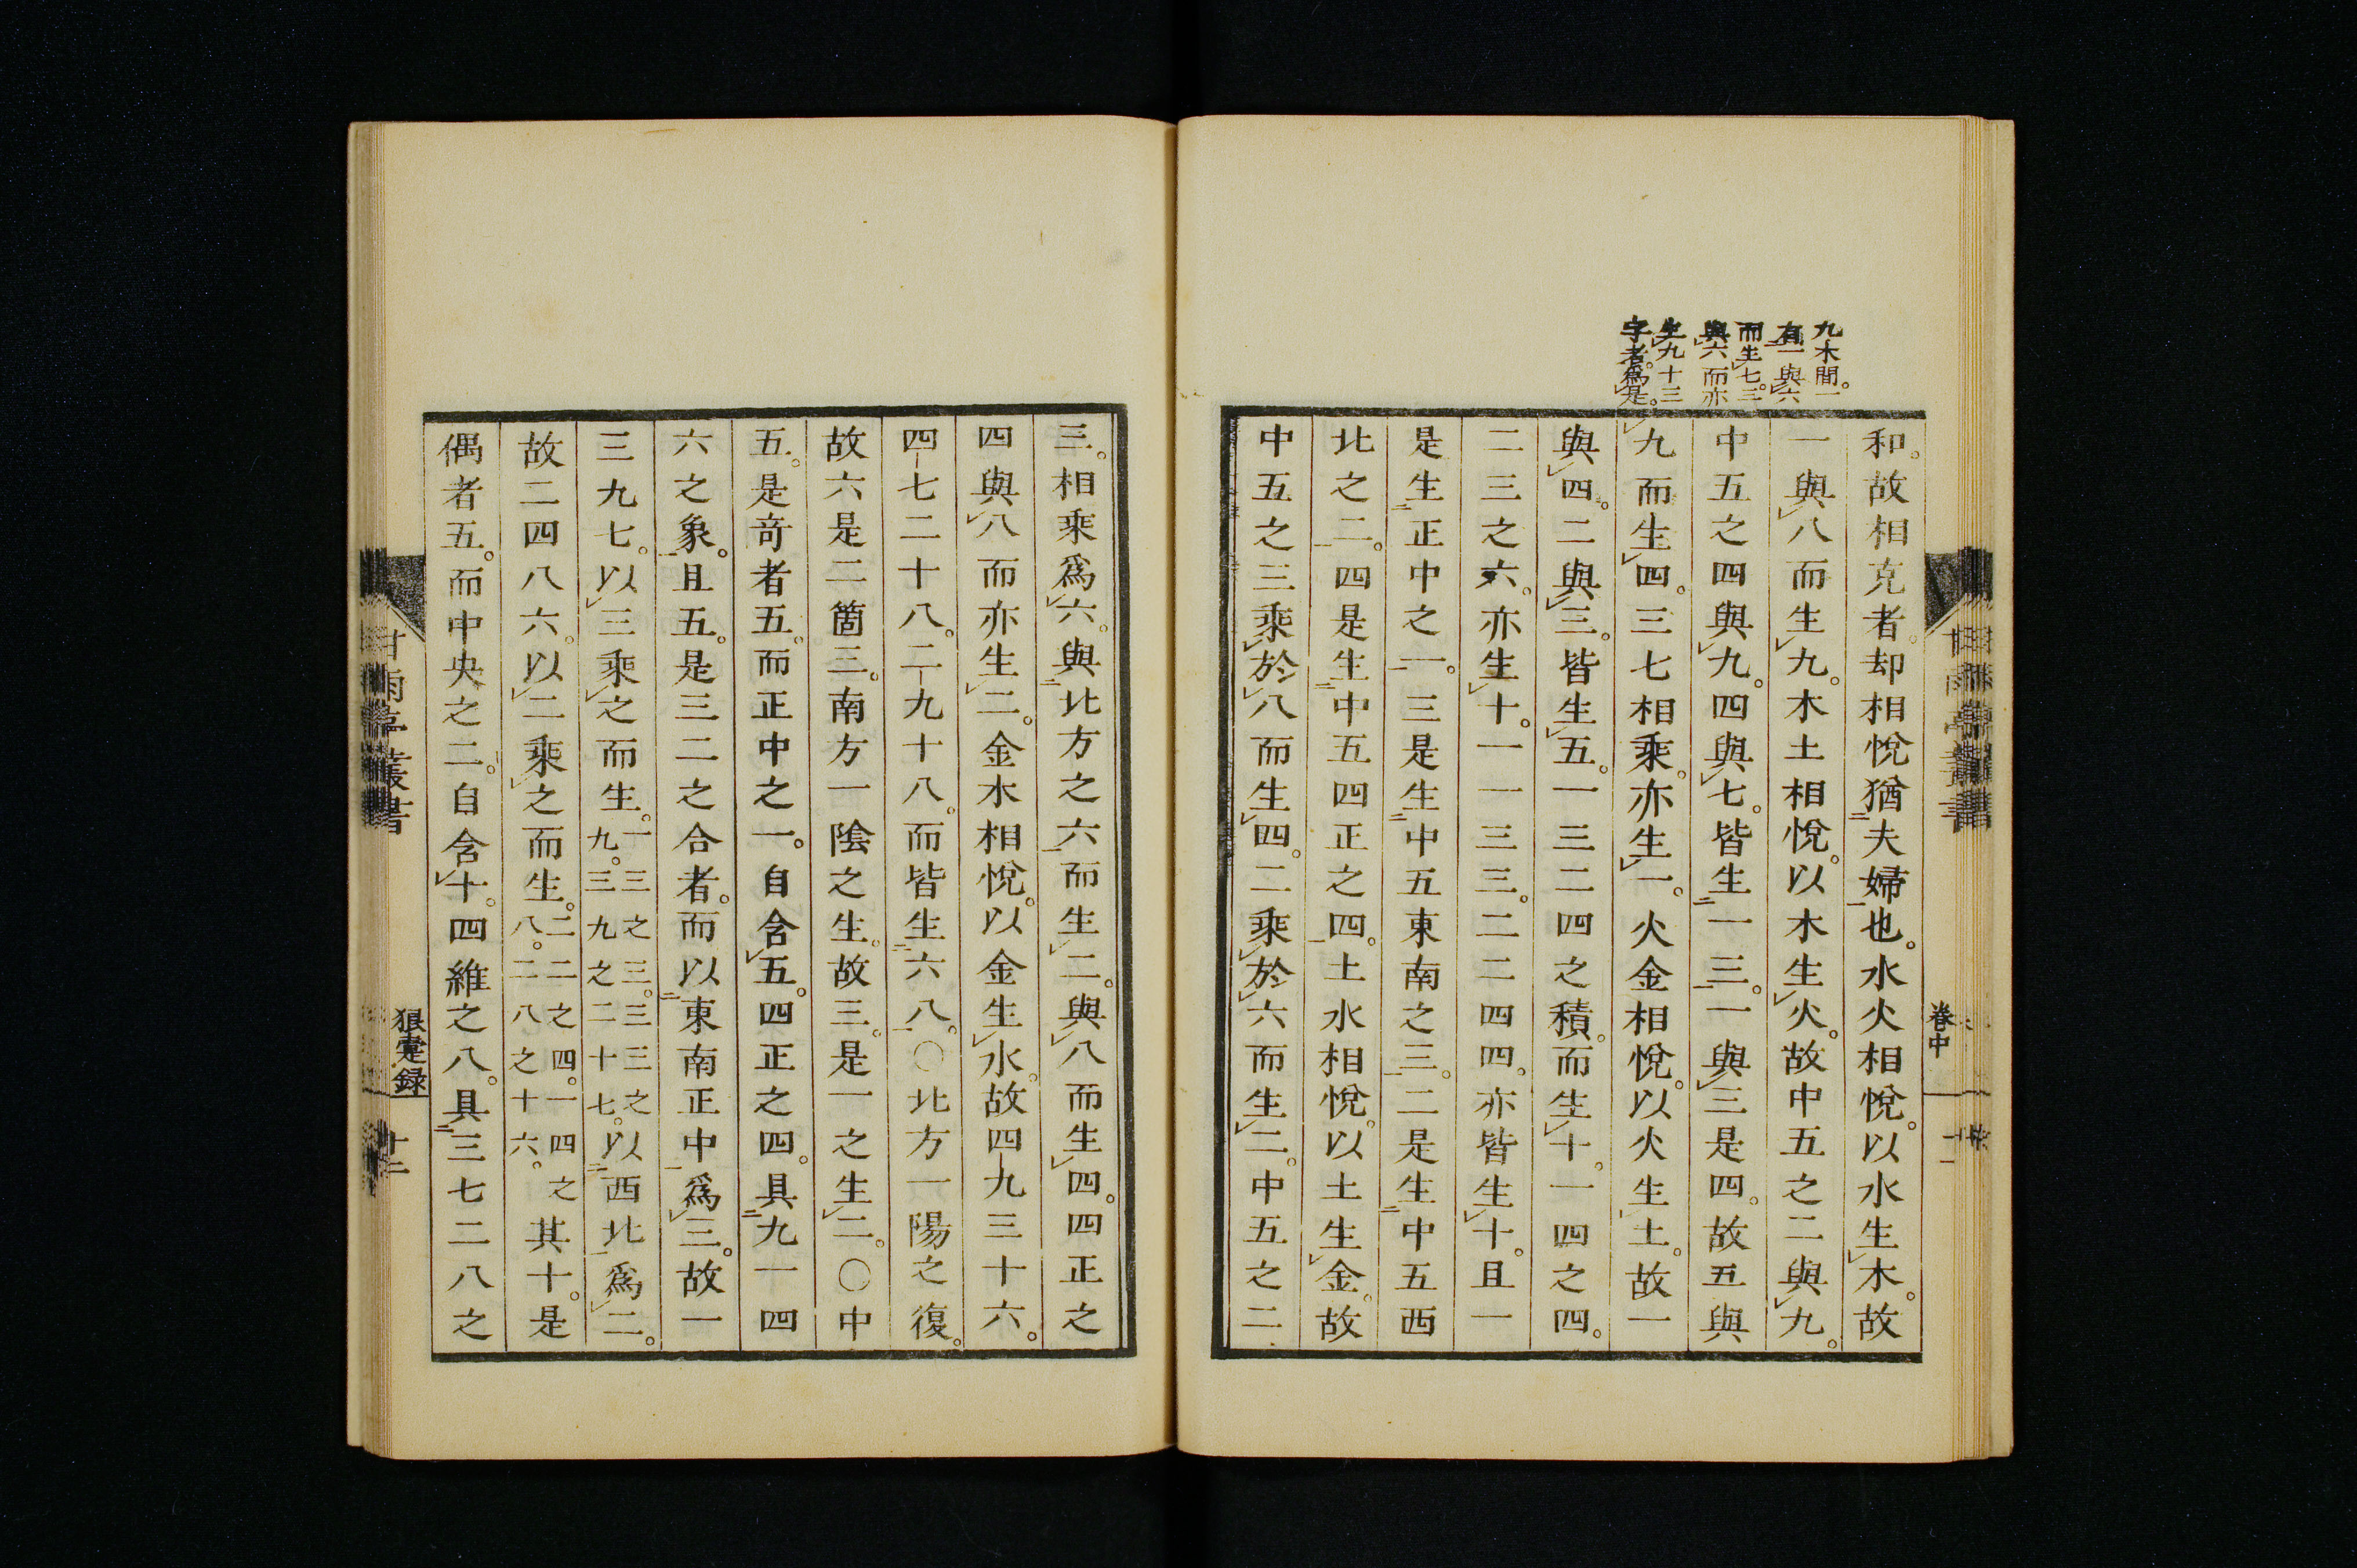 九木間。一
有一與六
而生七。三
與六而亦
生九十三
字者。爲是。
和。故相克者。却相悅猶夫婦也。水火相悅。以水生木。故
一與八而生九。木土相悅。以木生火。故中五之二與九。
中五之四與九。四與七。皆生一三。一與三是四。故五與
九而生四。三七相乘。亦生一。火金相悅。以火生土。故一
與四。二與三。皆生五。一三二四之積。而生十。一四之四。
二三之六。亦生十。一一三三。二二四四。亦皆生十。且一
是生正中之一。三是生中五東南之三。二是生中五西
北之二。四是生中五四正之四。土水相悅。以土生金。故
中五之三乘於八而生四。二乘於六而生二。中五之二
卷中
三。相乘爲六。與北方之六而生二。與八而生四。四正之
四與八而亦生二。金水相悅。以金生水。故四九三十六。
四七二十八。二九十八。而皆生六八。〇北方一陽之復。
故六是二箇三。南方一陰之生。故三。是一之生二。〇中
五。是竒者五。而正中之一。自含五。四正之四。具九一四
六之象。且五。是三二之合者。而以東南正中爲三。故一
三九七。以三乘之而生。一三之三。三三之九。三九之二十七。以西北爲二。
故二四八六。以二乘之而生。二二之四。一四之八。二八之十六。其十。是
偶者五。而中央之二。自含十。四維之八。具三七二八之
甘雨亭叢書
狼疐録
十二